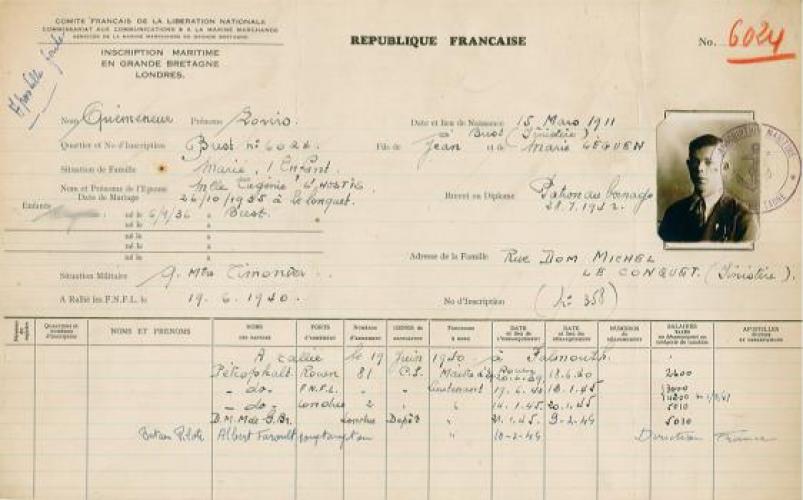 COMITE FRANÇAIS DE LA LIBERATION NATIONALE
COMMISSARIAT AUX COMMUNICATIONS & A LA MARINE MARCHANDE
SERVICES DE LA MARINE MARCHANDE EN GRANDE BRETAGNE
INSCRIPTION MARITIME
EN GRANDE BRETAGNE
LONDRES.
REPUBLIQUE FRANCAISE
No. 6024
Nom Quéméneur Prénoms
Date et lieu de Naissance 15 Mars 1911
à Brest (Finistère)
Quartier et No d'Inscription Brest n° 6024
Fils de Jean et de Marie
Situation de Famille Marié, 1 Enfant.
Nom et Prénoms de l'Epouse Mlle Eugénie L'Hostis
Date de Mariage 26/10/1935 à le Conquet.
Brevet ou Diplôme Patron au Bornage
28.7.1942.
Enfants né le 6/9/36 à Brest.
né le à
né le à
né le à
né le à
Adresse de la Famille Rue Dom Michel
Le Conquet. (Finistère).
Situation Militaire Q. Mtre Timonier
A Rallié les F.N.F.L. le 19.6.1940.
No d'Inscription (L. 358)
INSCRIPTION MARITIME
NOMS ET PRENOMS
NOMS DES NAVIRES
PORTS D'ARMEMENT
GENRE DE NAVIGATION
FONCTIONS A BORD
DATE et lieu de
DATE et lieu de
NUMEROS DU DESARMEMENT
SALAIRES
APOSTILLES
A rallié le 19 Juin 1940 à Falmouth.
Pétrophalt Rouen 81 C.I. Rouen 18.6.40 2400
- do - F.N.F.L. - - Lieutenant 19.6.40 13.1.45 3000
- do - Londres 2 14.1.45 20.1.45 5010
B.M.M de G.Br. Londres Dépôt 21.1.45 9-2-45 5030
Bateau Pilote Albert Faroult 10-2-45 Direction France